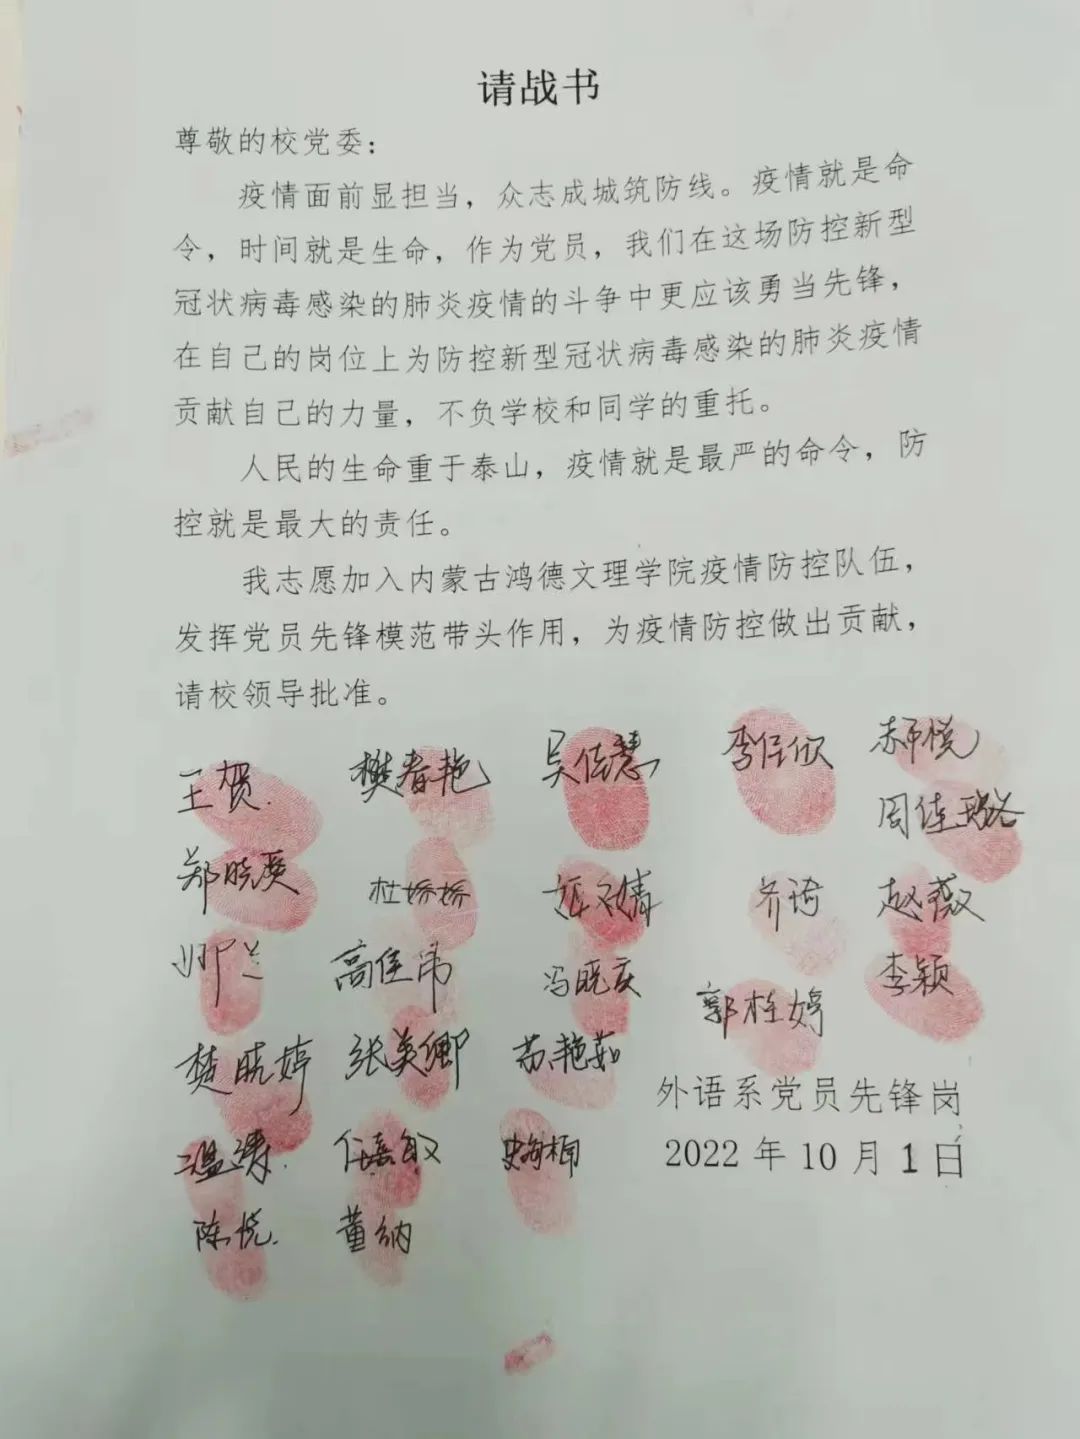 请战书
尊敬的校党委：
疫情面前显担当，众志成城筑防线。疫情就是命
令，时间就是生命，作为党员，我们在这场防控新型
冠状病毒感染的肺炎疫情的斗争中更应该勇当先锋，
在自己的岗位上为防控新型冠状病毒感染的肺炎疫情
贡献自己的力量，不负学校和同学的重托。
人民的生命重于泰山，疫情就是最严的命令，防
控就是最大的责任。
我志愿加入内蒙古鸿德文理学院疫情防控队伍，
发挥党员先锋模范带头作用，为疫情防控做出贡献，
请校领导批准。
王贺 樊春艳 吴佳慧 李佳欣 郝悦
周佳璐
杜娇娇 齐琦 赵薇
高佳伟 冯晓庆 李颖
郭桂婷
樊晓婷 张美卿 苏艳茹
外语系党员先锋岗
2022 年 10 月 1 日
陈悦 董纳